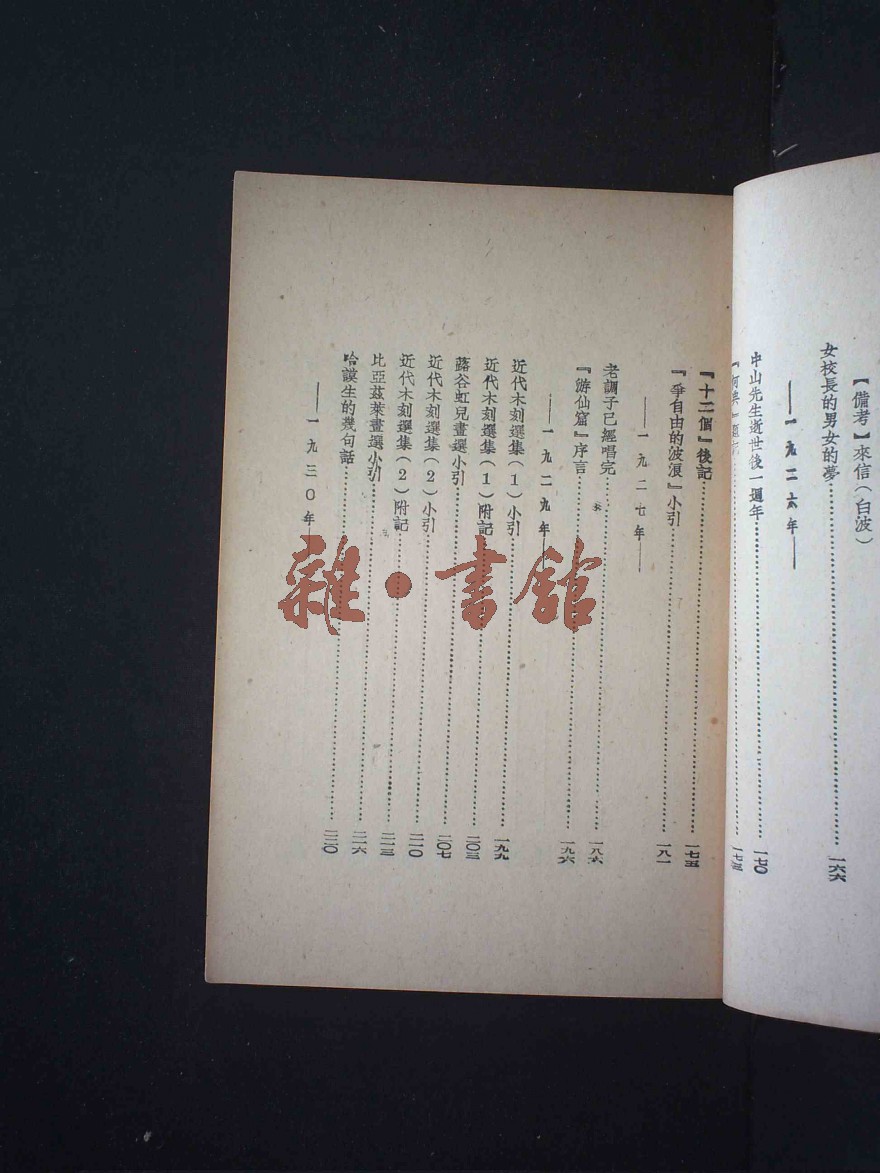 【備考】來信(白波)
女校長的男女的夢……一六六
——一九二六年——
中山先生逝世後一週年……一七〇
『何典』題記……一七三
『十二個』後記……一七五
『爭自由的波浪』小引……一八一
——一九二七年——
老調子已經唱完……一八六
『游仙窟』序言……一九六
——一九二九年——
近代木刻選集(1)小引……一九九
近代木刻選集(1)附記……二〇三
蕗谷虹兒畫選小引……二〇七
近代木刻選集(2)小引……二一〇
近代木刻選集(2)附記……二一三
比亞茲萊畫選小引……二一六
哈謨生的幾句話……二二〇
——一九三〇年——
雜·書館